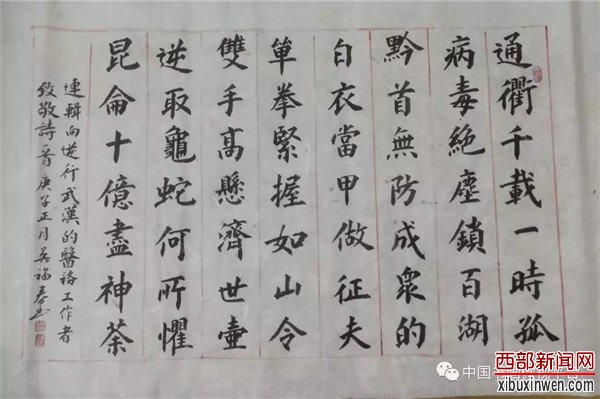 通衢千載一時孤
病毒絕塵鎖百湖
黔首無防成眾的
白衣當甲做征夫
單拳緊握如山令
雙手高懸濟世壺
逆取龜蛇何所懼
昆侖十億盡神荼
連輯向逆行武漢的醫務工作者
致敬詩一首 庚子正月吳福春書
西部新闻网
xibuxinwen.com